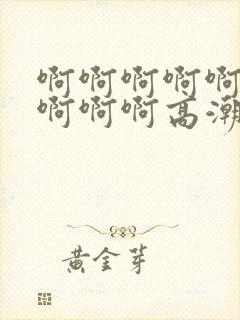 啊啊啊啊啊
啊啊啊高潮
黄金芽